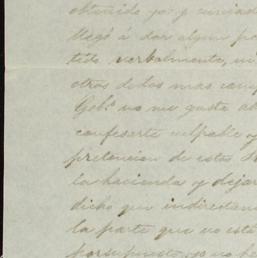 obtenido yo y enviad
llegó á dar algun pa
tido verbalmente, ni
otros de los mas com
Gobº no me gusta al
confesarte culpable y
pretencion de estos
la hacienda y dejar
dicho que indirectam
la parte que no está
por supuesto, yo no he